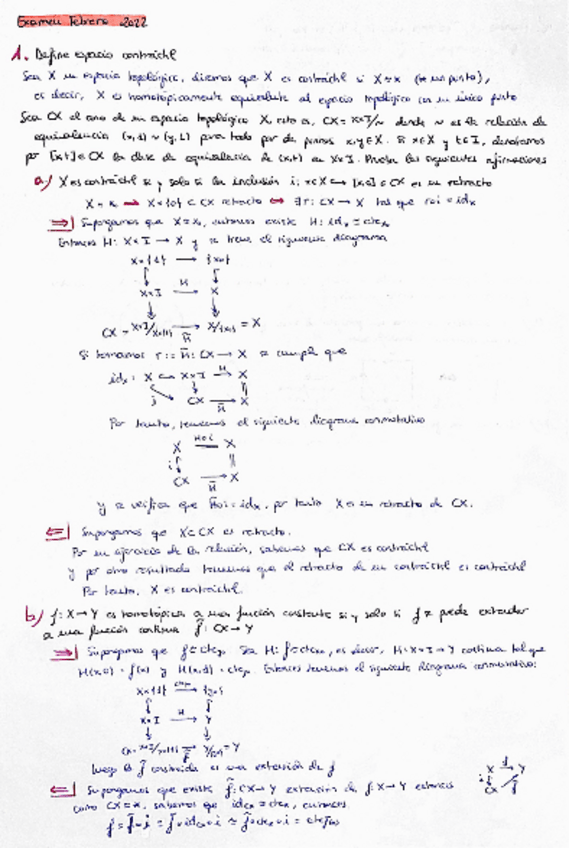 Examen Febrero 2022
1. Define espacio contráctil
Sea X un espacio topológico, diremos que X es contráctil si X ≃ * (* un punto),
es decir, X es homotópicamente equivalente al espacio topológico con un único punto
Sea CX el cono de un espacio topológico X, esto es, CX = X×I/~ donde ~ es la relación de
equivalencia (x,1) ~ (y,1) para todo par de puntos x,y ∈ X. Si x ∈ X y t ∈ I, denotamos
por [x,t] ∈ CX la clase de equivalencia de (x,t) en X×I. Prueba las siguientes afirmaciones
a) X es contráctil si y solo si la inclusión i: x∈X ↪ [x,0] ∈ CX es un retracto
X ≃ * ⟹ X×{0} ⊂ CX retracto ⟺ ∃ r: CX → X tal que r∘i = id_X
⟹| Supongamos que X ≃ *, entonces existe H: id_X ≃ cte_x₀
Entonces H: X×I → X y se tiene el siguiente diagrama
X×{1} → {x₀}
X×I →H X
CX = X×I/X×{1} →H̄ X/{x₀} = X
Si tomamos r := H̄: CX → X se cumple que
id_X: X ↪ X×I →H X
j CX →H̄ X
Por tanto, tenemos el siguiente diagrama conmutativo
X H∘i X
i
CX →H̄ X
y se verifica que H̄∘i = id_X, por tanto X es un retracto de CX.
⟸| Supongamos que X ⊂ CX es retracto.
Por un ejercicio de la relación, sabemos que CX es contráctil
y por otro resultado tenemos que el retracto de un contráctil es contráctil
Por tanto, X es contráctil.
b) f: X → Y es homotópica a una función constante si y solo si f se puede extender
a una función continua f̃: CX → Y
⟹| Supongamos que f ≃ cte_y₀. Sea H: f ≃ cte_y₀, es decir, H: X×I → Y continua tal que
H(x,0) = f(x) y H(x,1) = cte_y₀. Entonces tenemos el siguiente diagrama conmutativo:
X×{1} → {y₀}
X×I →H Y
CX = X×I/X×{1} →f̃ Y/{y₀} = Y
Luego la f̃ construida es una extensión de f
⟸| Supongamos que existe f̃: CX → Y extensión de f: X → Y entonces
como CX ≃ *, sabemos que id_CX ≃ cte_x, entonces
X →f Y
i CX f̃
f = f̃∘i = f̃∘id_CX∘i ≃ f̃∘cte_x∘i = cte